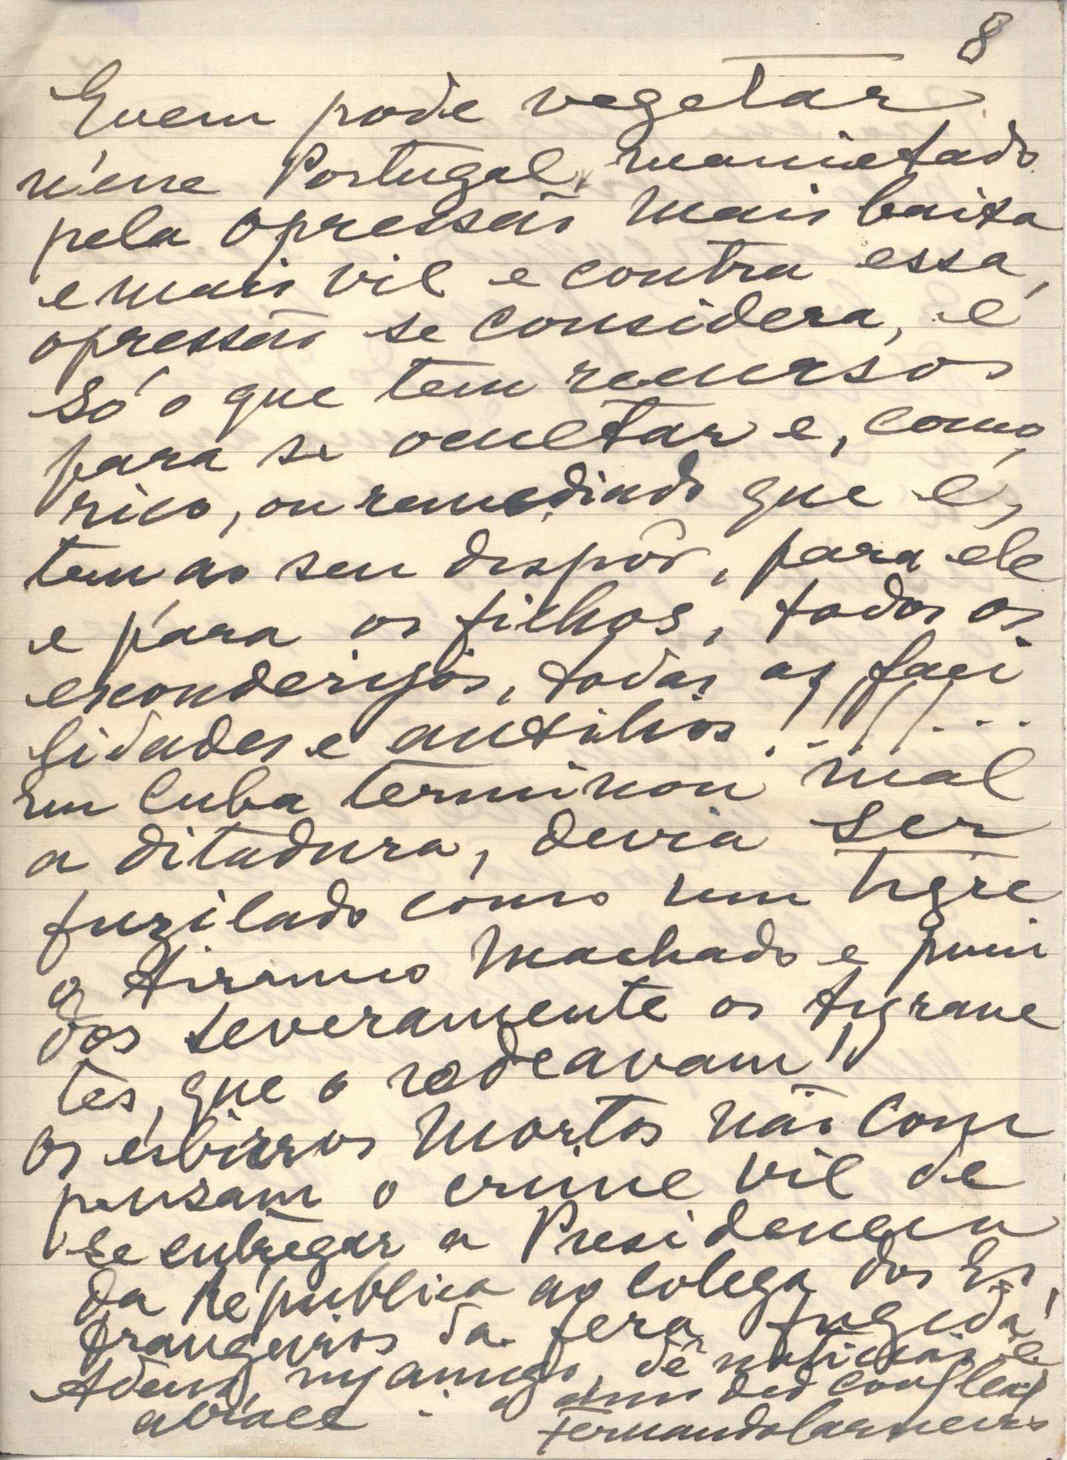 8
Quem pode vegetar
n'esse Portugal, manietado
pela opressão mais baixa
e mais vil e contra essa
opressão se considera, é
só o que tem recursos
para se ocultar e, como
rico, ou remediado que é,
tem ao seu dispôr, para ele
e para os filhos, todos os
esconderijos, todas as faci
lidades e auxilios!...
Em Cuba terminou mal
a ditadura, devia ser
fuzilado como um tigre
o tiranno Machado e puni
dos severamente os tyrane
tes, que o rodeavam!
Os esbirros mortos não com
pensam o crime vil de
se entregar a Presidencia
da Républica ao colega dos Es
trangeiros da fera fugida!
Adeus, meu amigo, dê noticias e
abrace o seu ded confleal
Fernando Carneiro